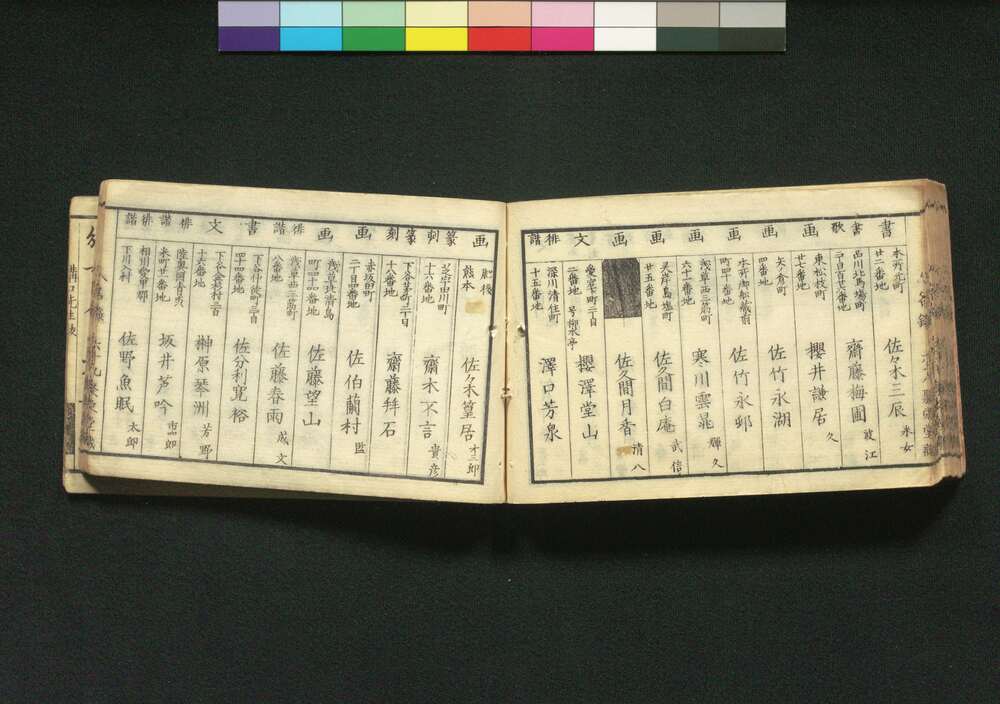 書
本所番町
廿二番地
佐々木三辰 米女
書
西川北馬場町
齋藤梅圃 波江
歌
東松枝町
廿七番地
櫻井謙居 久
画
矢ノ倉町
四番地
佐竹永湖
画
本所御船蔵前
町四十一番地
佐竹永邨
画
浅草西三筋町
六十二番地
寒川雲晁 輝久
画
霊岸島塩町
廿五番地
佐久間白庵 武信
画
佐久間月香 清八
文
愛宕下町二丁目
二番地 号柳水亭
櫻澤堂山
俳諧
深川清住町
十五番地
澤口芳泉
画
肥後
熊本
佐々木篁居 才三郎
篆刻
芝西田川町
十六番地
齋木不言 貴彦
篆刻
下谷茅町二丁目
十八番地
齋藤拜石
画
赤坂田町
二丁目四番地
佐伯蘭村 監
画
浅草北清島
町四十四番地
佐藤望山
俳諧
浅草西三筋町
八番地
佐藤春雨 成文
書
下谷仲徒町三丁目
四十四番地
佐分利寛裕
文
下谷金杉村二百
十六番地
榊原琴洲 芳野
俳諧
米町廿一番地
坂井芦吟
俳諧
相州愛甲郡
下川入村
佐野魚眠 太郎